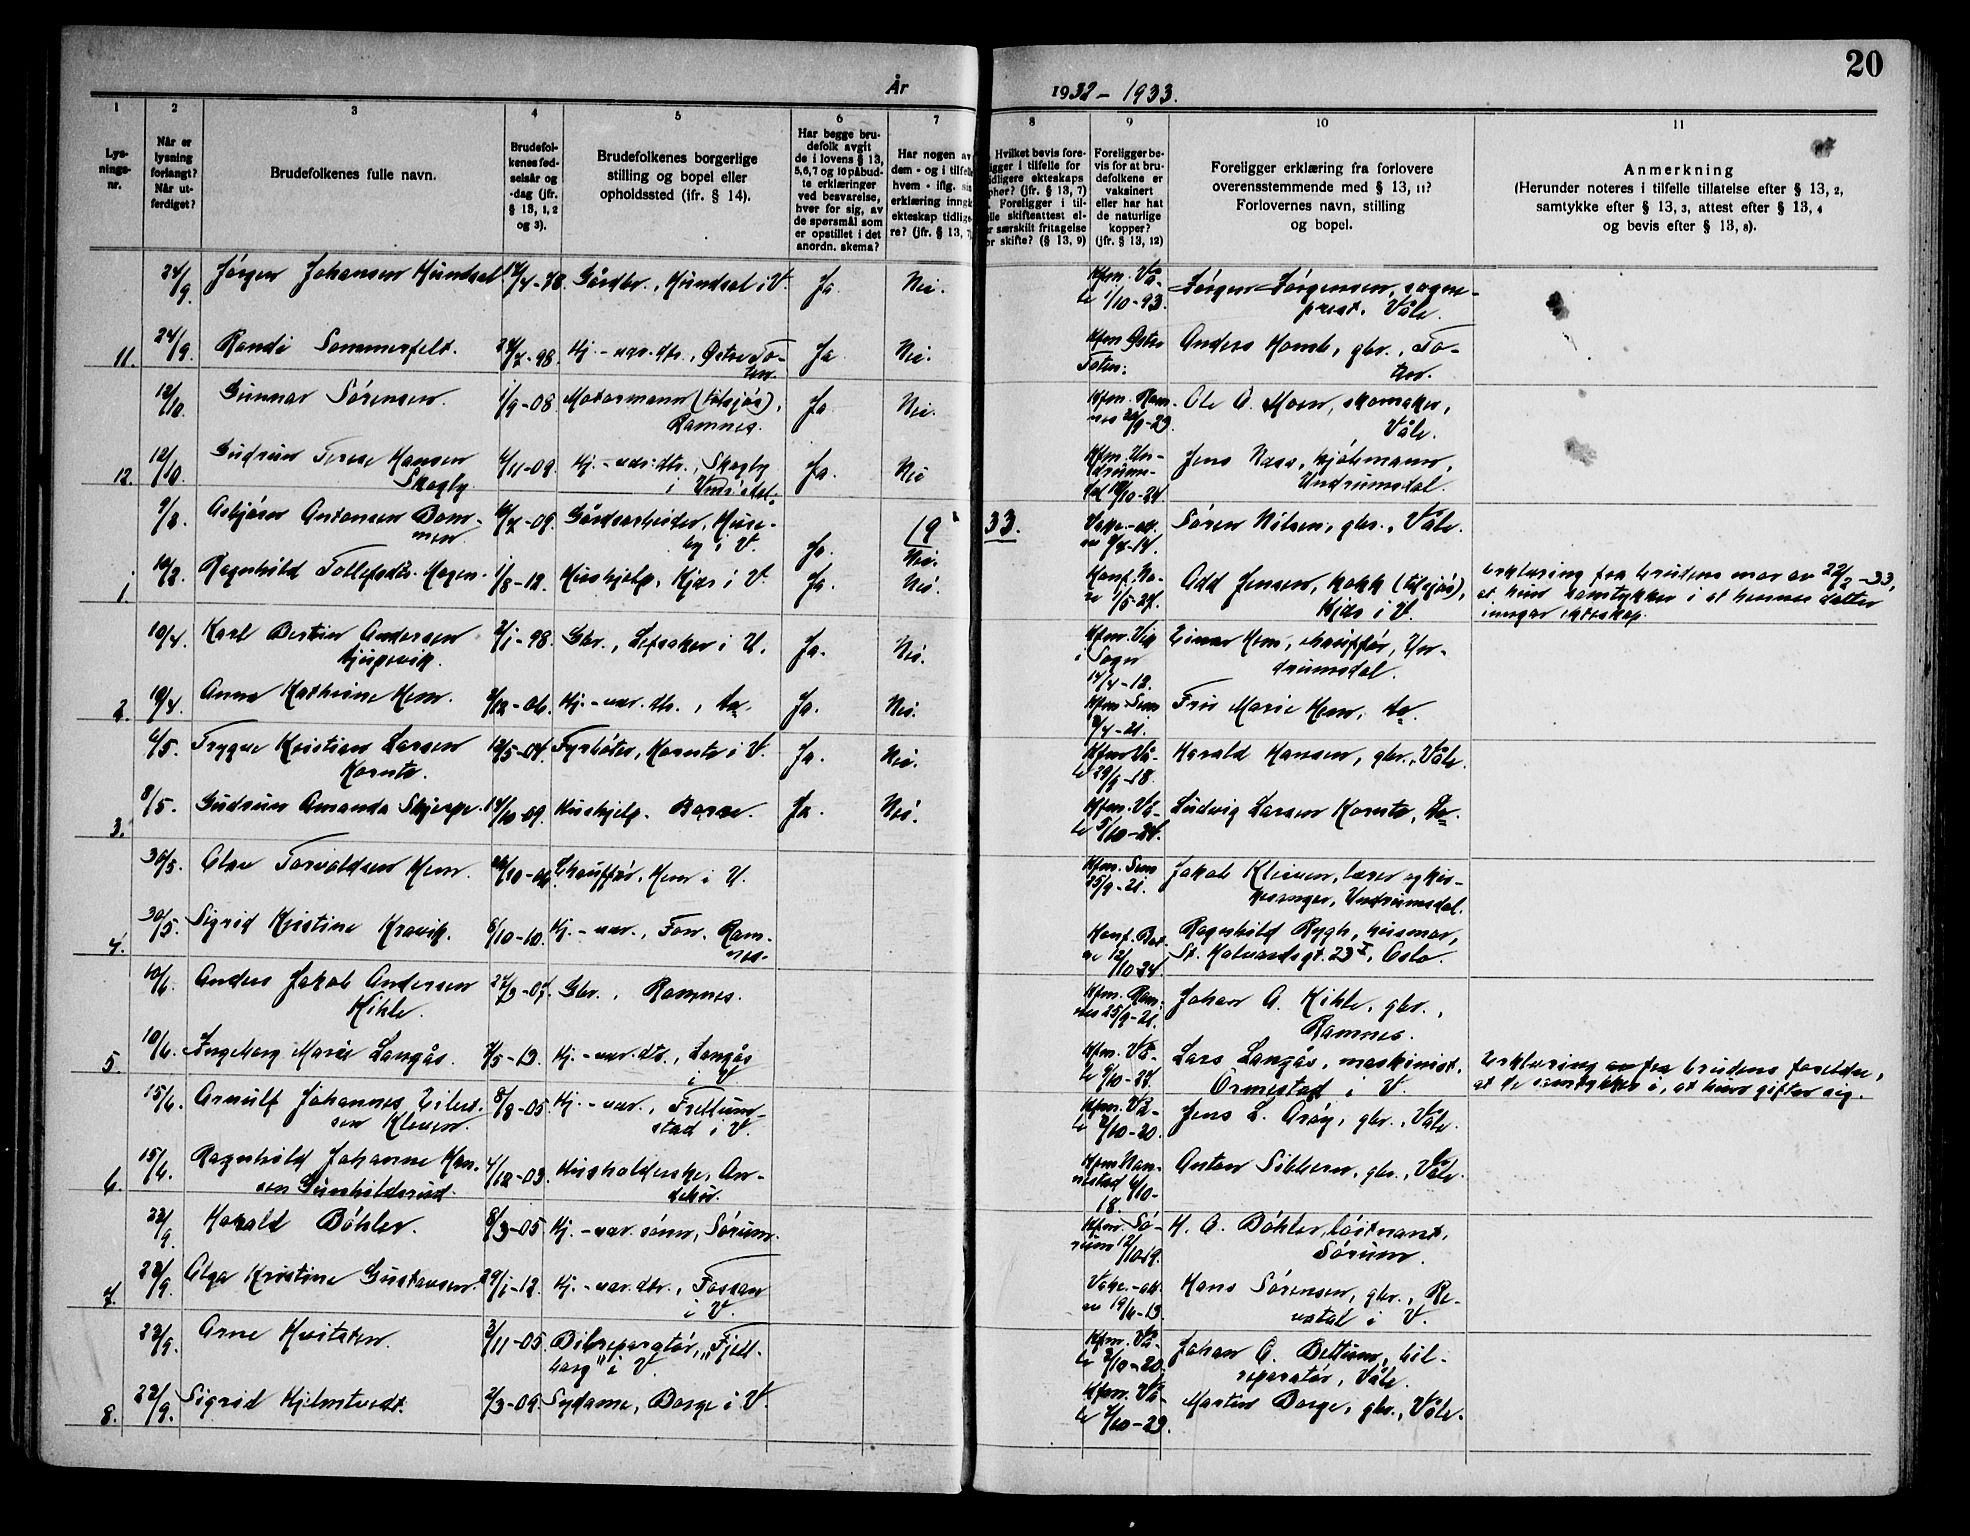 20
År 1932 – 1933.
1
2
3
4
5
6
7
8
9
10
11
Lys-
nings-
nr.
Når er
lysning
forlangt?
Når ut-
ferdiget?
Brudefolkenes fulle navn.
Brudefol-
kenes fød-
selsår og
-dag (jfr.
§ 13, 1, 2
og 3).
Brudefolkenes borgerlige
stilling og bopel eller
opholdssted (jfr. § 14).
Har begge bru-
defolk avgit
de i lovens § 13,
5,6,7 og 10 påbud-
te erklæringer
ved besvarelse,
hver for sig, av
de spørsmål som
er opstillet i det
anordn. skema?
Har nogen av
dem - og i tilfelle
hvem - iflg. sin
erklæring inngått
ekteskap tidlige-
re? (jfr. § 13, 7)
Hvilket bevis fore-
ligger i tilfelle for
tidligere ekteskaps
ophør? (jfr. § 13, 7)
Foreligger i til-
felle skifteattest el-
er særskilt fritagelse
for skifte? (§ 13, 9)
Foreligger be-
vis for at bru-
defolkene er
vaksinert
eller har hat
de naturlige
kopper?
(jfr. § 13, 12)
Foreligger erklæring fra forlovere
overensstemmende med § 13, 11?
Forlovernes navn, stilling
og bopel.
Anmerkning
(Herunder noteres i tilfelle tillatelse efter § 13, 2,
samtykke efter § 13, 3, attest efter § 13, 4
og bevis efter § 13, 8).
24/9. Jørgen Johansen Hundsal Gårdbr., Hundsal i V. Ja Nei. Kfm. Vå-
le 1/10-93. Jørgen Jørgensen, sogne-
prest, Våle.
11. 24/9. Randi Sommerfelt. Hj.-vær. dtr., Østre To-
ten. Ja Nei. Kfm Østre
Toten. Anders Homb, gbr., To-
ten.
12/10 Gunnar Sørensen. 1/9-08 Motormann (tilsjøs),
Ramnes. Ja Nei. Kfm. Ram-
nes -23. Ole A. Moen, skomaker,
Våle.
12. 12/10 Gudrun Terese Hansen
Skogly 4/11-09 Hj.-vær. dtr., Skogly
i Undr.dal. Ja. Nei Kfm. Un-
drums-
dal -24 Jens Næss, hjulmann,
Undrumsdal.
1933.
9/2. Asbjørn Antonsen Bom-
men. -09. Gårdsarbeider, Huse-
by i V. Ja. Nei. Vaks.-att. Søren Nilsen, gbr., Våle.
1. 10/2. Ragnhild Tollefsdtr. Hagen. 1/8-12 Hushjelp, Kjær i V. Ja. Nei. Konf. 1/5-27. Odd Jensen, kokk (tilsjøs),
Kjær i V. Erklæring fra brudens mor av 22/2-33,
at hun samtykker i at hennes datter
inngår ekteskap.
10/4 Karl Bertin Andersen
Ljugsvik. 2/1-98. Gbr., Lefsaker i U. Ja. Nei. Kfm. Vik
i Sogn
14/4-12. Einar Hem, chauffør, Un-
drumsdal.
2. 10/4. Anna Kathrine Hem. -06. Hj.-vær. dtr., do. Ja. Nei. Kfm. Sem
-21. Fru Marie Hem, do.
4/5. Trygve Kristian Larsen
Kornste. 12/5-04. Fyrbøter, Kornste i V. Ja. Nei. Kfm. Vå-
le 29/9-18. Harald Hansen, gbr., Våle.
3. 8/5. Gudrun Amanda Skjerpe. 14/10-09. Hushjelp. Borre. Ja. Nei. Kfm. Vå-
le 5/10-24. Ludvig Larsen Kornste, do.
30/5. Olav Torvaldsen Hem. -06. Chauffør, Hem i U. Kfm. Sem
25/9-21. Jakob Kleiven, lærer og kir-
kesanger, Undrumsdal.
4. 30/5. Sigrid Kristine Kravik. 6/10-10. Hj.-vær., Fon. Ram-
nes. Konf. Bor-
re 12/10-24. Ragnhild Rygh, husmor,
St. Halvardsgt. 23 I, Oslo.
10/6. Anders Jakob Andersen
Kihle. 27/3-07. Gbr., Ramnes. Kfm. Ram-
nes 25/9-21. Johan A. Kihle, gbr.,
Ramnes.
5. 10/6. Ingeborg Marie Langås. -13 Hj.-vær. dtr., Langås
i V Kfm. Vå-
le 9/10-27. Lars Langås, maskinist.
Ormestad i V. Erklæring fra brudens foreldre,
at de samtykker i, at hun gifter sig.
15/6. Arnulf Johannes Eilert-
sen Kleven. 8/8-05. Hj.-vær., Frettum-
stad i V. Kfm. Vå-
le 3/10-20. Jens L. Arøy, gbr., Våle.
6. 15/6. Ragnhild Johanne Han-
sen Gunhildsrud. 4/12-03. Husholderske, An-
debu. Kfm. Nan-
nestad 6/10-
18. Anton Sibbern, gbr., Våle.
22/9. Harald Böhler. 8/3-05 Hj.-vær. sønn, Sørum. Kfm. Sø-
rum 12/10-19. H. A. Böhler, løitnant,
Sørum.
7. 22/9. Olga Kristine Gustavsen. 29/1-12. Hj.-vær. dtr., Fossan
i V. Vaks.-att.
av 19/6-13 Hans Sørensen, gbr., Re-
vetal i V.
22/9. Arne Kvitsten. 3/11-05 Bilreparatør, „Fjell-
borg" i V. Kfm. Vå-
le 3/10-20 Johan A. Bettum, bil-
reparatør, Våle.
8. 22/9. Sigrid Hjelmtvedt. 2/3-09. Sydame, Borge i V. Kfm. Vå-
le 7/10-23. Martin Borge, gbr., Våle.